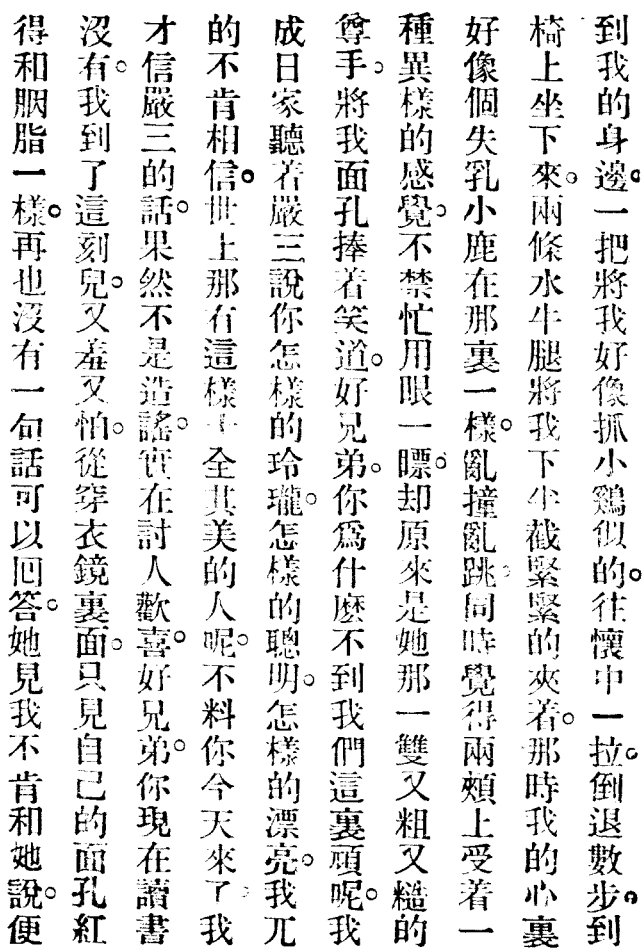 到我的身邊。一把將我好像抓小鷄似的。往懷中一拉。倒退數步。到
椅上坐下來。兩條水牛腿將我下半截緊緊的夾着。那時我的心裏
好像個失乳小鹿在那裏一樣。亂撞亂跳。同時覺得兩頰上受着一
種異樣的感覺。不禁忙用眼一瞟。却原來是她那一雙又粗又糙的
尊手。將我面孔捧着笑道。好兄弟。你爲什麽不到我們這裏頑呢。我
成日家聽着嚴三說你怎樣的玲瓏。怎樣的聰明。怎樣的漂亮。我兀
的不肯相信。世上那有這樣十全其美的人呢。不料你今天來了。我
才信嚴三的話。果然不是造謠。實在討人歡喜。好兄弟。你現在讀書
沒有。我到了這刻兒。又羞又怕。從穿衣鏡裏面。只見自己的面孔紅
得和胭脂一樣。再也沒有一句話可以囘答。她見我不肯和她說。便